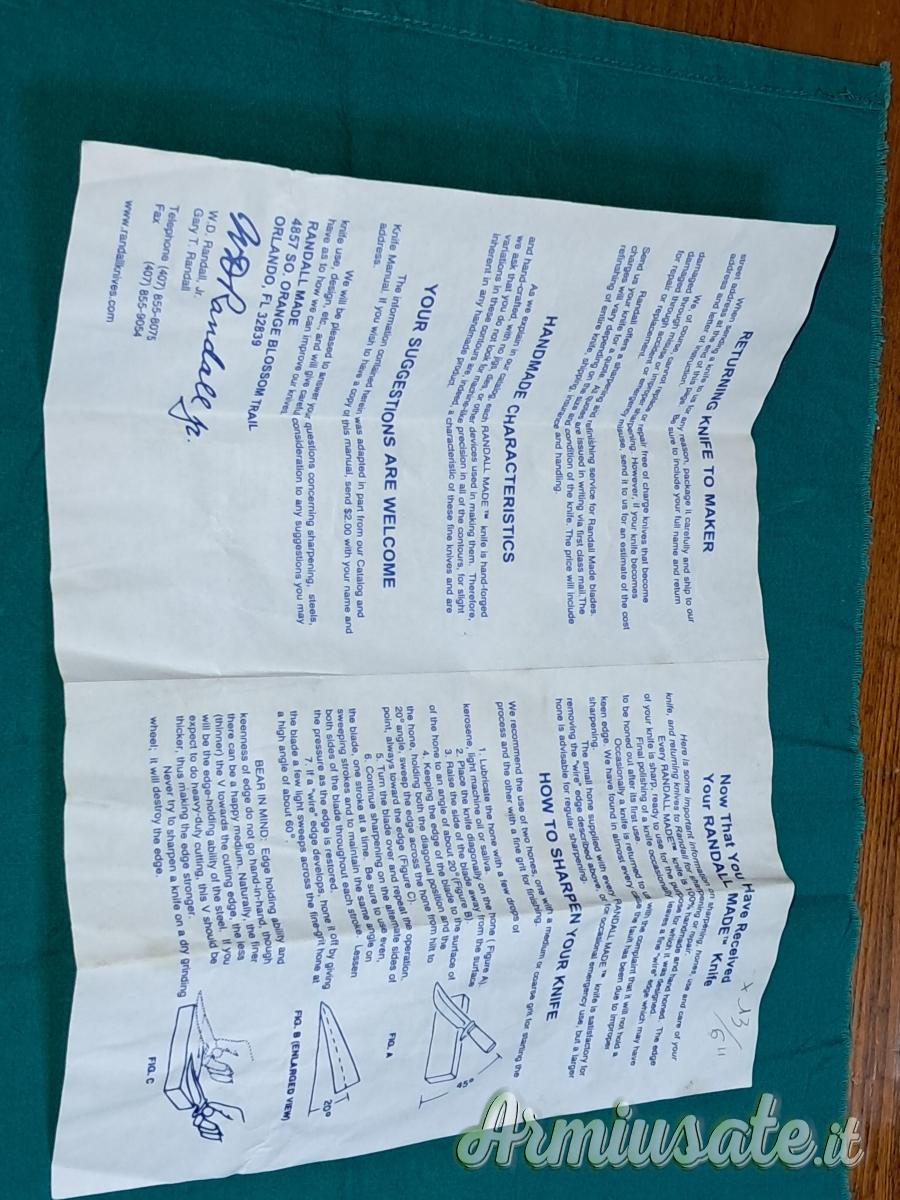 RETURNING KNIFE TO MAKER
When sending a knife to us for any reason, package it carefully and ship to our
street address at the end of this page. Be sure to include your full name and return
address and letter of instruction.
We, of course, cannot replace or repair free of charge knives that become
damaged through misuse or
for repair or replacement.
Randall offers a sharpening and refinishing service for Randall Made blades.
Send us your knife for
charges will vary depending on the
refinishing of entire knife,
and handling.
HANDMADE CHARACTERISTICS
As we explain in our catalog, each RANDALL MADE™ knife is hand-forged
and hand-crafted, with no jigs, dies, or other devices used in making them. Therefore,
we ask that you do not look for machine-like precision in all of the contours, for slight
variations in these contours are to be expected, a characteristic of these fine knives and are
inherent in any handmade product.
YOUR SUGGESTIONS ARE WELCOME
The information contained herein was adapted in part from our Catalog and
Knife Manual. If you wish to have a copy of this manual, send $2.00 with your name and
address.
We will be pleased to answer your questions concerning sharpening, steels,
knife use, design, etc., and will give careful consideration to any suggestions you may
have as to how we can improve our knives.
RANDALL MADE
4857 SO. ORANGE BLOSSOM TRAIL
ORLANDO, FL 32839
W.D. Randall Jr.
W.D. Randall, Jr.
Gary T. Randall
Telephone (407) 855-8075
Fax (407) 855-9054
www.randallknives.com
+ 13/6"
Now That You Have Received
Your RANDALL MADE™ Knife
Here is some important information on sharpening, hones, use and care of your
knife, and returning knives to Randall for sharpening or repair.
Every RANDALL MADE™ knife is 100% handmade and hand honed. The edge
of your knife is sharp, ready to use for the purpose for which it was designed.
Final polishing of a knife occasionally leaves a fine "wire" edge which may have
to be honed out after its first use.
Occasionally a knife is returned to us with the complaint that it will not hold a
keen edge. We have found in almost every case the fault has been due to improper
sharpening.
The small hone supplied with every RANDALL MADE™ knife is satisfactory for
removing the "wire" edge described above, or for occasional emergency use, but a larger
hone is advisable for regular sharpening.
HOW TO SHARPEN YOUR KNIFE
We recommend the use of two hones, one with a medium or coarse grit for starting the
process and the other with a fine grit for finishing.
1. Lubricate the hone with a few drops of
kerosene, light machine oil or saliva.
2. Place the knife diagonally on the hone (Figure A).
3. Raise the side of the blade away from the surface
of the hone to an angle of about 20° (Figure B).
4. Keeping the edge of the blade to the surface of
the hone, holding both the diagonal position and the
20° angle, sweep the edge across the hone from hilt to
point, always toward the edge (Figure C).
5. Turn the blade over and repeat the operation.
6. Continue sharpening on the alternate sides of
the blade, one stroke at a time. Be sure to use even,
sweeping strokes and to maintain the same angle on
both sides of the blade throughout each stroke. Lessen
the pressure as the edge is restored.
7. If a "wire" edge develops, hone it off by giving
the blade a few light sweeps across the fine-grit hone at
a high angle of about 60°
BEAR IN MIND: Edge holding ability and
keenness of edge do not go hand-in-hand, though
there can be a happy medium. Naturally, the finer
(thinner) the V towards the cutting edge, the less
will be the edge-holding ability of the steel. If you
expect to do heavy-duty cutting, this V should be
thicker, thus making the edge stronger.
Never try to sharpen a knife on a dry grinding
wheel; it will destroy the edge.
45°
FIG. A
20°
FIG. B (ENLARGED VIEW)
FIG. C
Armiusate.it